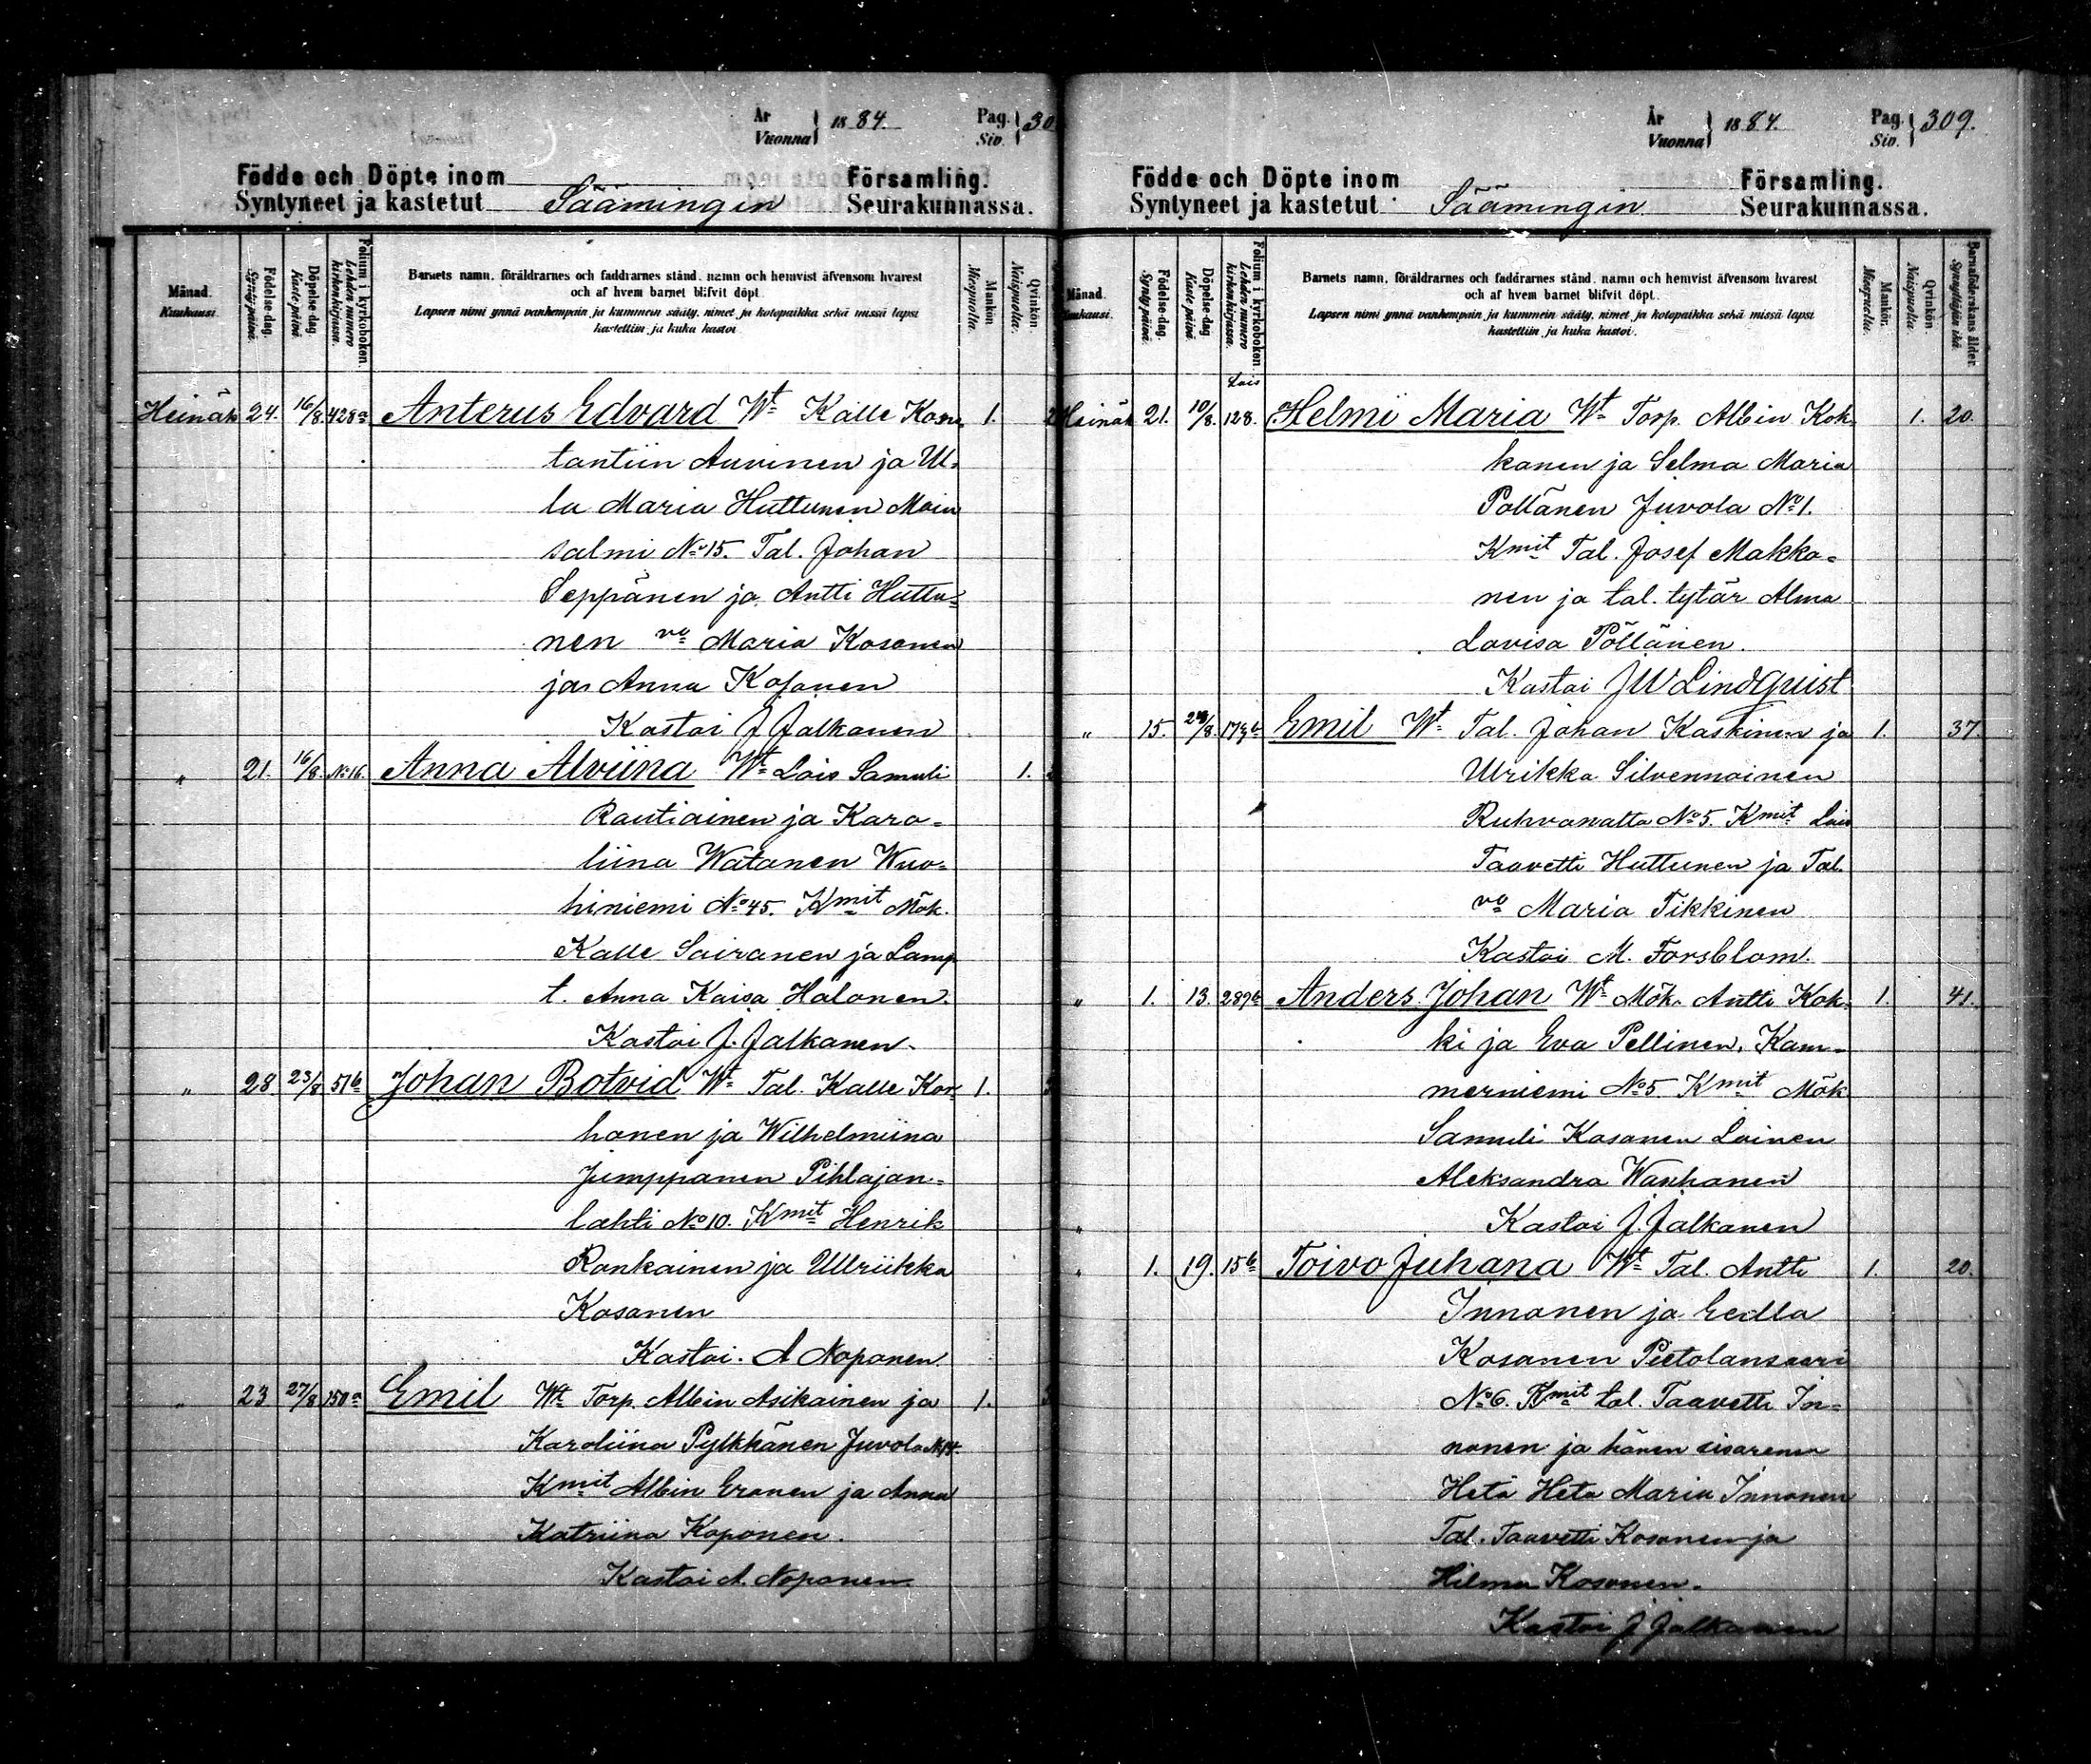 År
Vuonna
1884.
Pag.
Siv.
30
Födde och Döpte inom
Församling.
Syntyneet ja kastetut Säämingin Seurakunnassa.
Månad.
Kuukausi.
Födelse-dag.
Syntyjpäivä.
Döpelse-dag
Kaste päivä
Folium i kyrkoboken.
Lehden numero kirkonkirjassa.
Barnets namn, föräldrarnes och faddrarnes stånd, namn och hemvist äfvensom hvarest
och af hvem barnet blifvit döpt.
Lapsen nimi ynnä vanhempain ja kummein sääty, nimet ja kotopaikka sekä missä lapsi
kastettiin ja kuka kastoi.
Mankön.
Miespuolta.
Qvinkön.
Naispuolta.
Heinäk 24. 16/8. 428a Anterus Edvard Wt Kalle Kons 1.
tantiin Auvinen ja Ul-
la Maria Huttunen Moin
salmi No 15. Tal. Johan
Seppänen ja Antti Huttu-
nen vo Maria Kosonen
ja Anna Kosonen
Kastoi J Jalkanen
" 21. 16/8. No 16. Anna Alviina Wt Lois Samuli 1.
Rautiainen ja Karo-
liina Watanen Wuo-
hiniemi No 45. Kmit Mök.
Kalle Sairanen ja Lamp
t. Anna Kaisa Halonen.
Kastoi J. Jalkanen.
" 28. 23/8 51b Johan Botvid Wt Tal. Kalle Kor 1.
honen ja Wilhelmiina
Jumppanen Pihlajan-
lahti No 10. Kmit Henrik
Ronkainen ja Ullriikka
Kosonen
Kastoi. A Noponen.
" 23 27/8 150a Emil Wt Torp. Albin Asikainen ja 1.
Karoliina Pylkkänen Juvola No 14.
Kmit Albin Eronen ja Anna
Katriina Koponen.
Kastoi A. Noponen
År
Vuonna
1884.
Pag.
Siv.
309.
Födde och Döpte inom
Församling.
Syntyneet ja kastetut Säämingin Seurakunnassa.
Månad.
Födelse-dag.
Syntyjpäivä.
Döpelse-dag
Kaste päivä
Folium i kyrkoboken.
Lehden numero kirkonkirjassa.
Barnets namn, föräldrarnes och faddrarnes stånd, namn och hemvist äfvensom hvarest
och af hvem barnet blifvit döpt.
Lapsen nimi ynnä vanhempain ja kummein sääty, nimet ja kotopaikka sekä missä lapsi
kastettiin ja kuka kastoi.
Mankön.
Miespuolta.
Qvinkön.
Naispuolta.
Barnaföderskans ålder
Synnyttäjän ikä.
Lois
Heinäk 21. 10/8. 128. Helmi Maria Wt Torp. Albin Kok- 1. 20.
kanen ja Selma Maria
Pöllänen Juvola No 1.
Kmit Tal. Josef Makko-
nen ja tal. tytär Alma
Lovisa Pöllänen.
Kastoi JW Lindquist
" 15. 24/8. 179b Emil Wt Tal. Johan Kaskinen ja 1. 37.
Ulrikka Silvennoinen
Ruhvanatta No 5. Kmit Lois
Taavetti Huttunen ja Tal.
vo Maria Tikkinen
Kastoi M. Forsblom.
" 1. 13. 289b Anders Johan Wt Mök. Antti Kok- 1. 41.
ki ja Eva Pellinen. Kam-
merniemi No 5. Kmit Mök
Samuli Kosonen Loinen
Aleksandra Wanhanen
Kastoi J. Jalkanen
" 1. 19. 15b Toivo Juhana Wt Tal. Antti 1. 20.
Innanen ja Eedla
Kosonen Pietolansaari
No 6. Kmit tal. Taavetti In-
nanen ja hänen sisarensa
Heta Heta Maria Innanen
Tal. Taavetti Kosonen ja
Hilma Kosonen.
Kastoi J Jalkanen